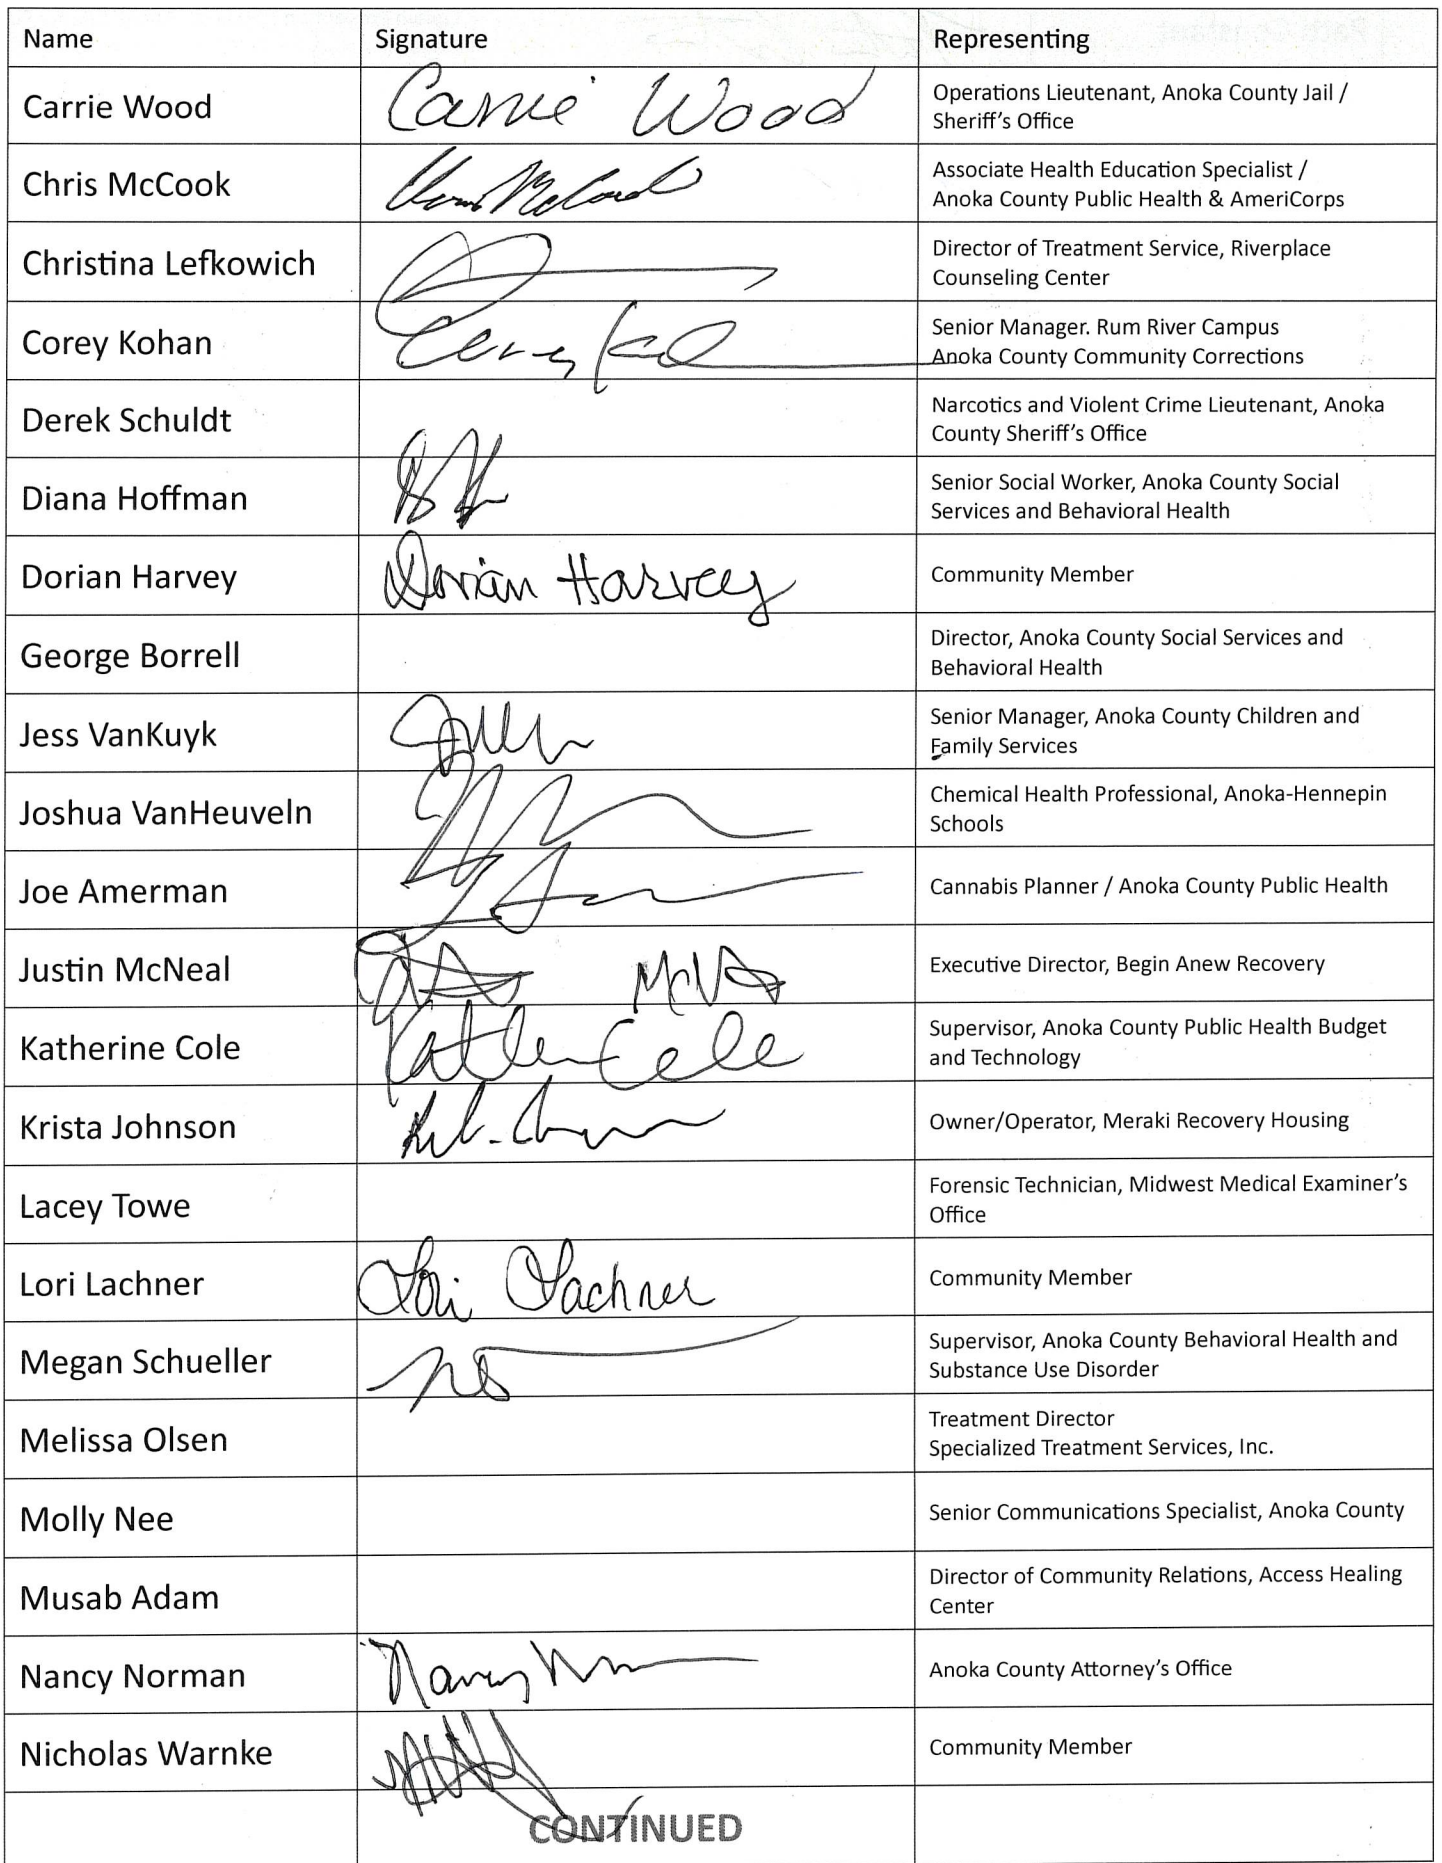 Name Signature Representing
Carrie Wood Carrie Wood Operations Lieutenant, Anoka County Jail /
Sheriff's Office
Chris McCook Associate Health Education Specialist /
Anoka County Public Health & AmeriCorps
Christina Lefkowich Director of Treatment Service, Riverplace
Counseling Center
Corey Kohan Senior Manager. Rum River Campus
Anoka County Community Corrections
Derek Schuldt Narcotics and Violent Crime Lieutenant, Anoka
County Sheriff's Office
Diana Hoffman Senior Social Worker, Anoka County Social
Services and Behavioral Health
Dorian Harvey Dorian Harvey Community Member
George Borrell Director, Anoka County Social Services and
Behavioral Health
Jess VanKuyk Senior Manager, Anoka County Children and
Family Services
Joshua VanHeuveln Chemical Health Professional, Anoka-Hennepin
Schools
Joe Amerman Cannabis Planner / Anoka County Public Health
Justin McNeal Executive Director, Begin Anew Recovery
Katherine Cole Cole Supervisor, Anoka County Public Health Budget
and Technology
Krista Johnson Owner/Operator, Meraki Recovery Housing
Lacey Towe Forensic Technician, Midwest Medical Examiner's
Office
Lori Lachner Lori Lachner Community Member
Megan Schueller Supervisor, Anoka County Behavioral Health and
Substance Use Disorder
Melissa Olsen Treatment Director
Specialized Treatment Services, Inc.
Molly Nee Senior Communications Specialist, Anoka County
Musab Adam Director of Community Relations, Access Healing
Center
Nancy Norman Nancy Anoka County Attorney's Office
Nicholas Warnke Community Member
CONTINUED